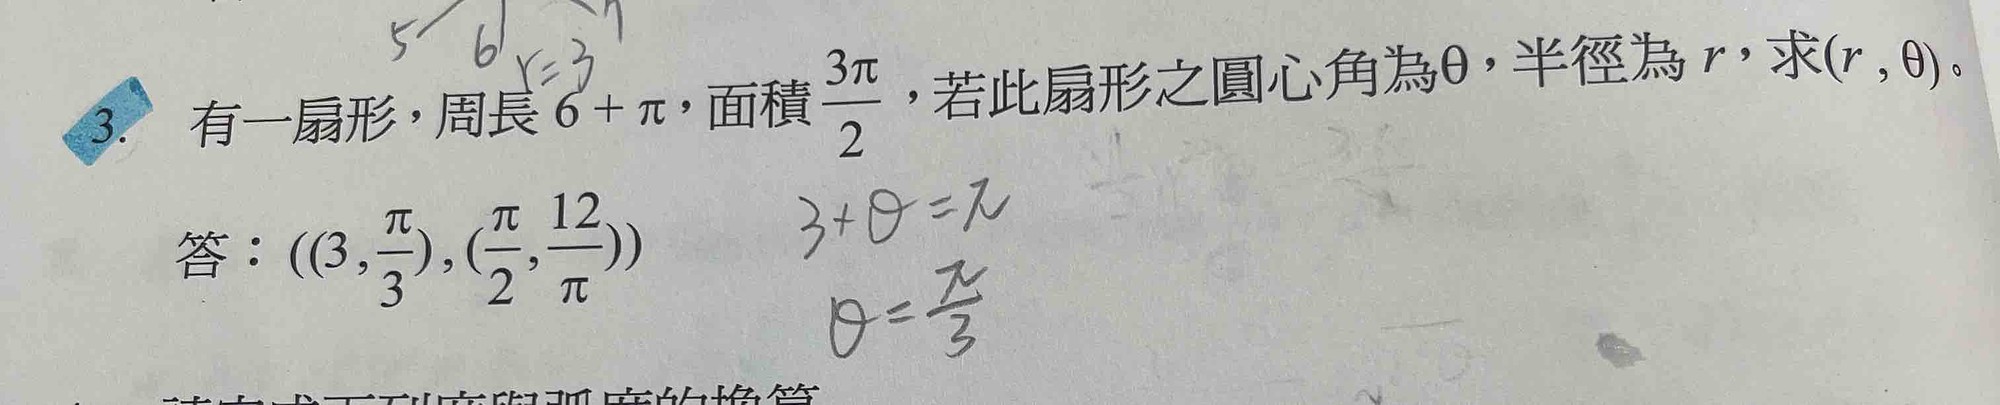 5 6
r=3
3. 有一扇形，周長 6 + π，面積 3π/2，若此扇形之圓心角為θ，半徑為 r，求(r , θ)。
答：((3, π/3), (π/2, 12/π))
3+θ=π
θ=π/3